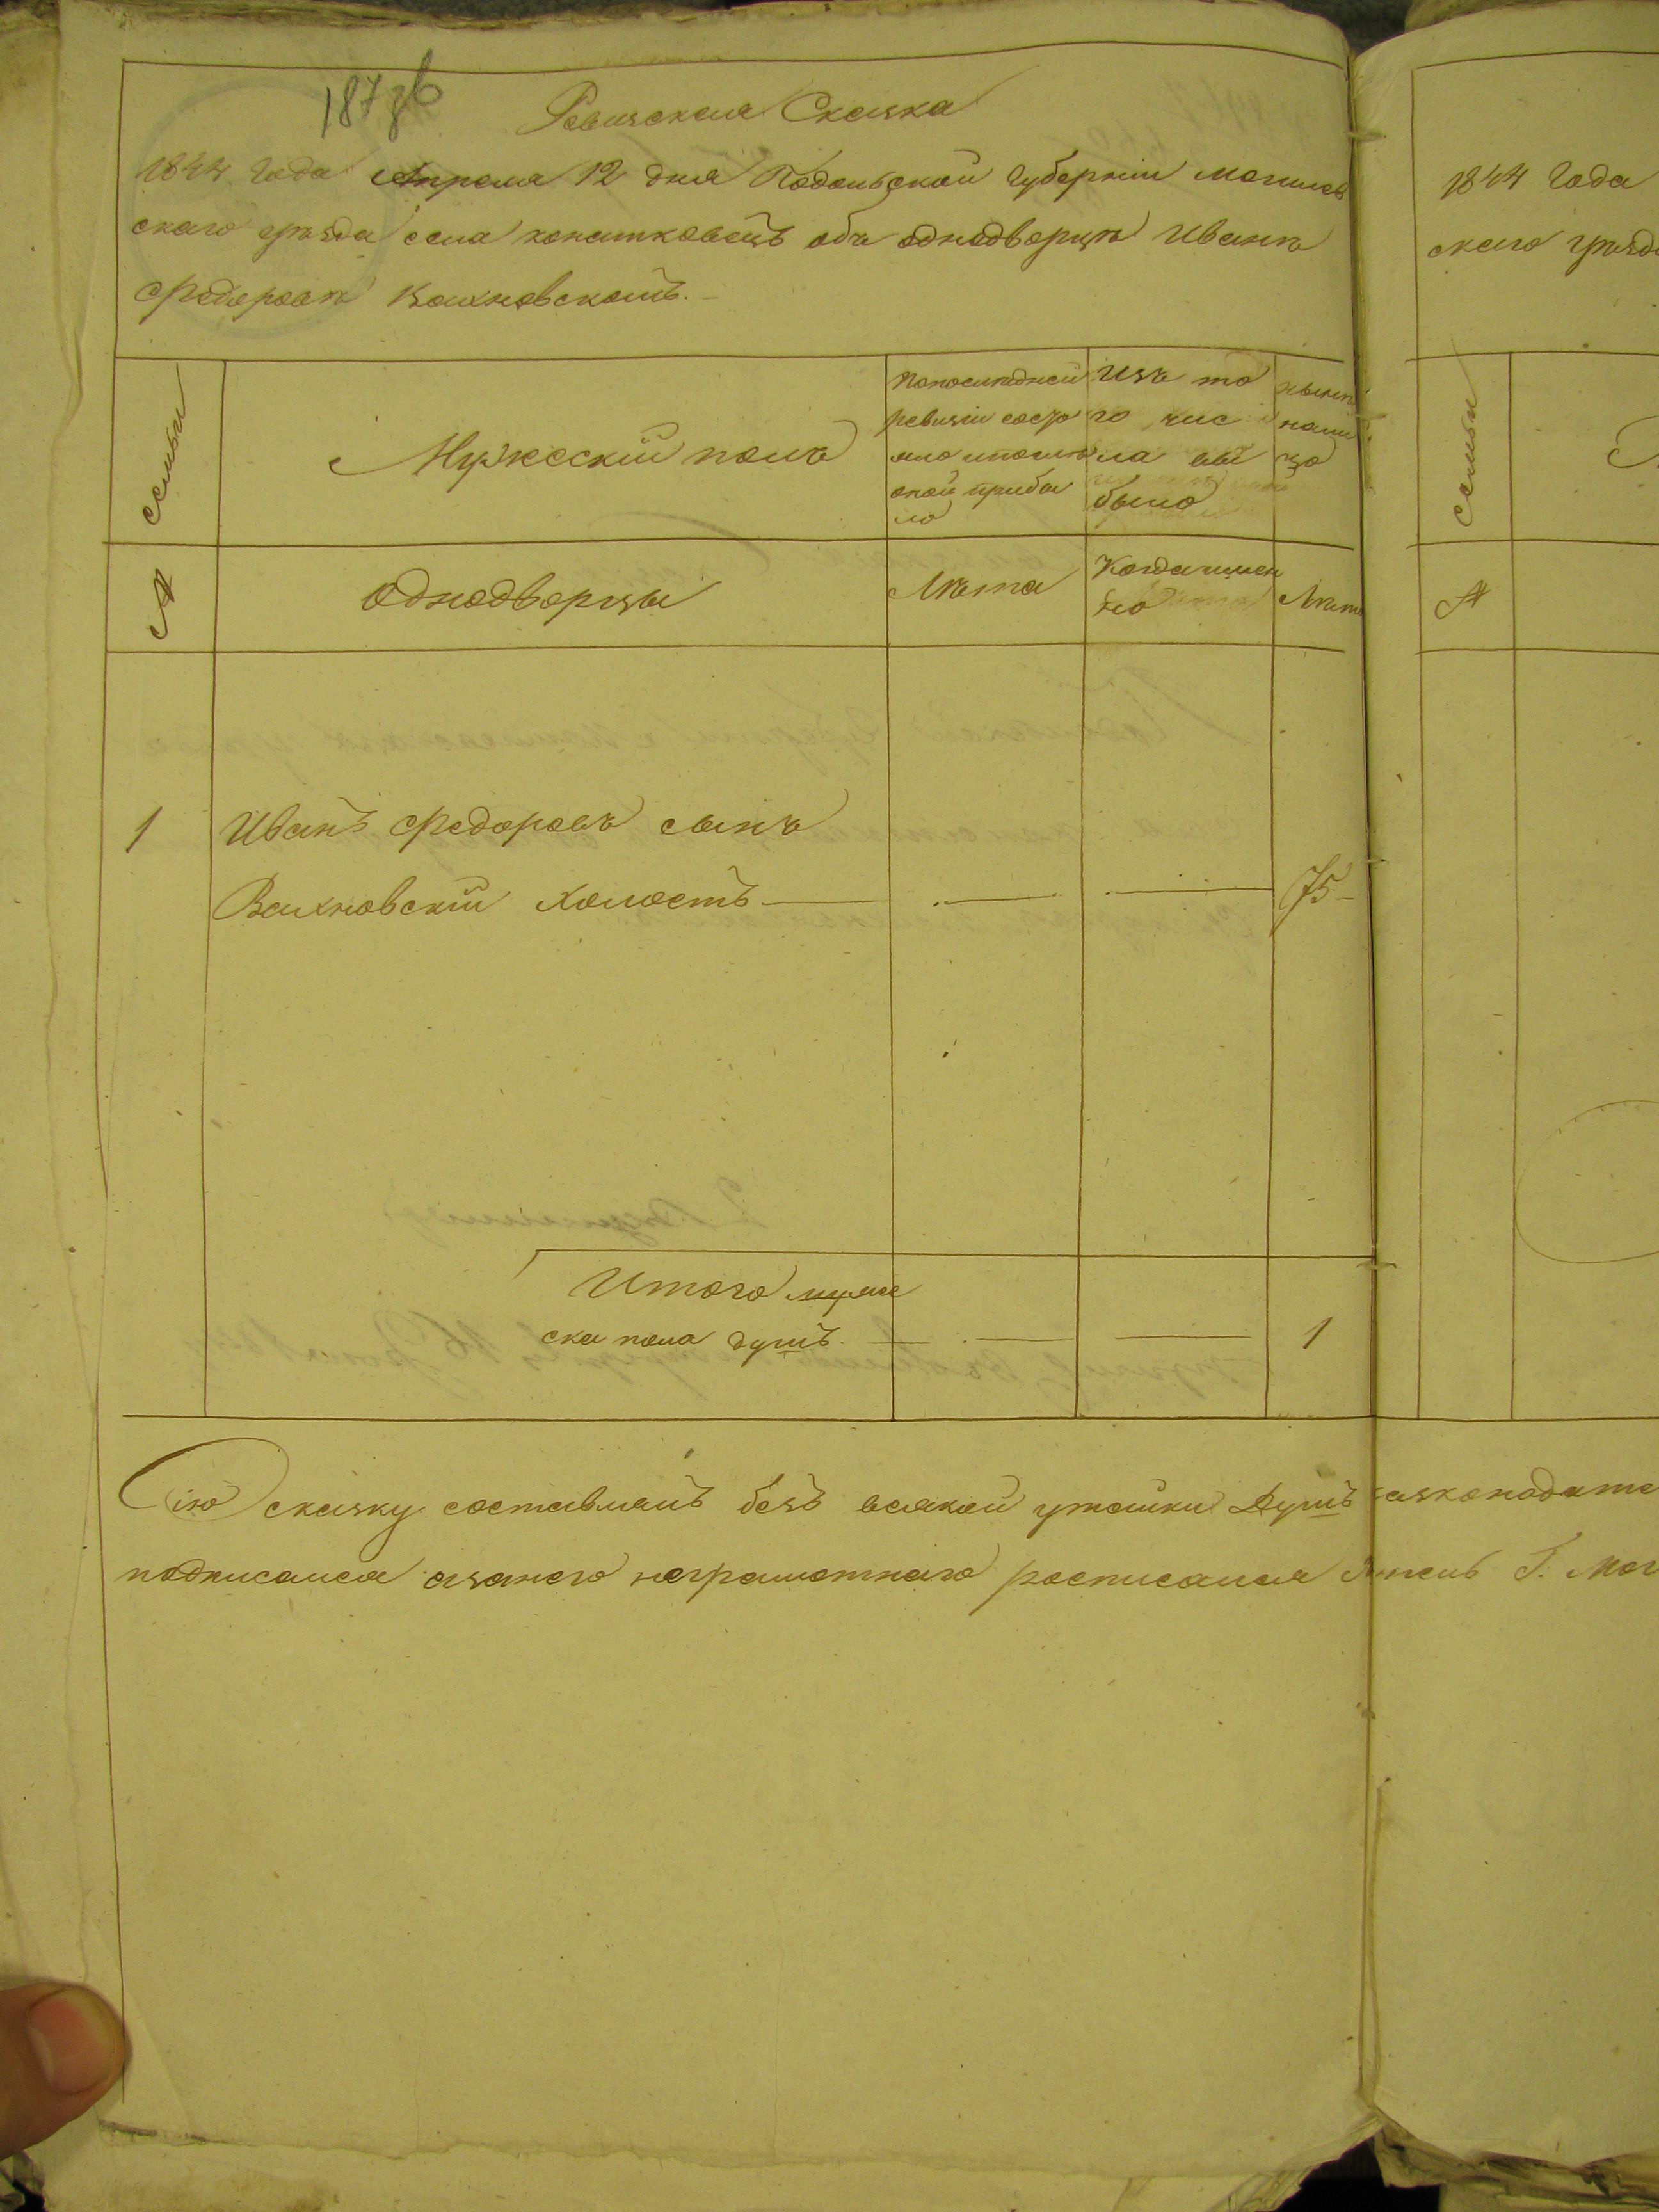 187зв
Ревизская Сказка
1844 года Апреля 12 дня Подольской губернии Могилев
скаго уезда села конатковецъ объ однодворце Иване
Федорове Вахновскомъ.
семьи
Мужескій полъ
Попоследней
ревизіи состо
яло ипосле
оной прибы
ло
Изъ то
го чис
ла вы
было
ныне
нали
цо
№
Однодворцы
Лета
Когдаимен
но
Лета
1
Иванъ Федоровъ сынъ
Вахновскій холостъ
75
Итого муже
ска пола душъ.
1
Сію сказку составлялъ безъ всякой утайки Душъ
подписался азанего неграмотнаго росписался
1844 Года
скаго уезда
семьи
№